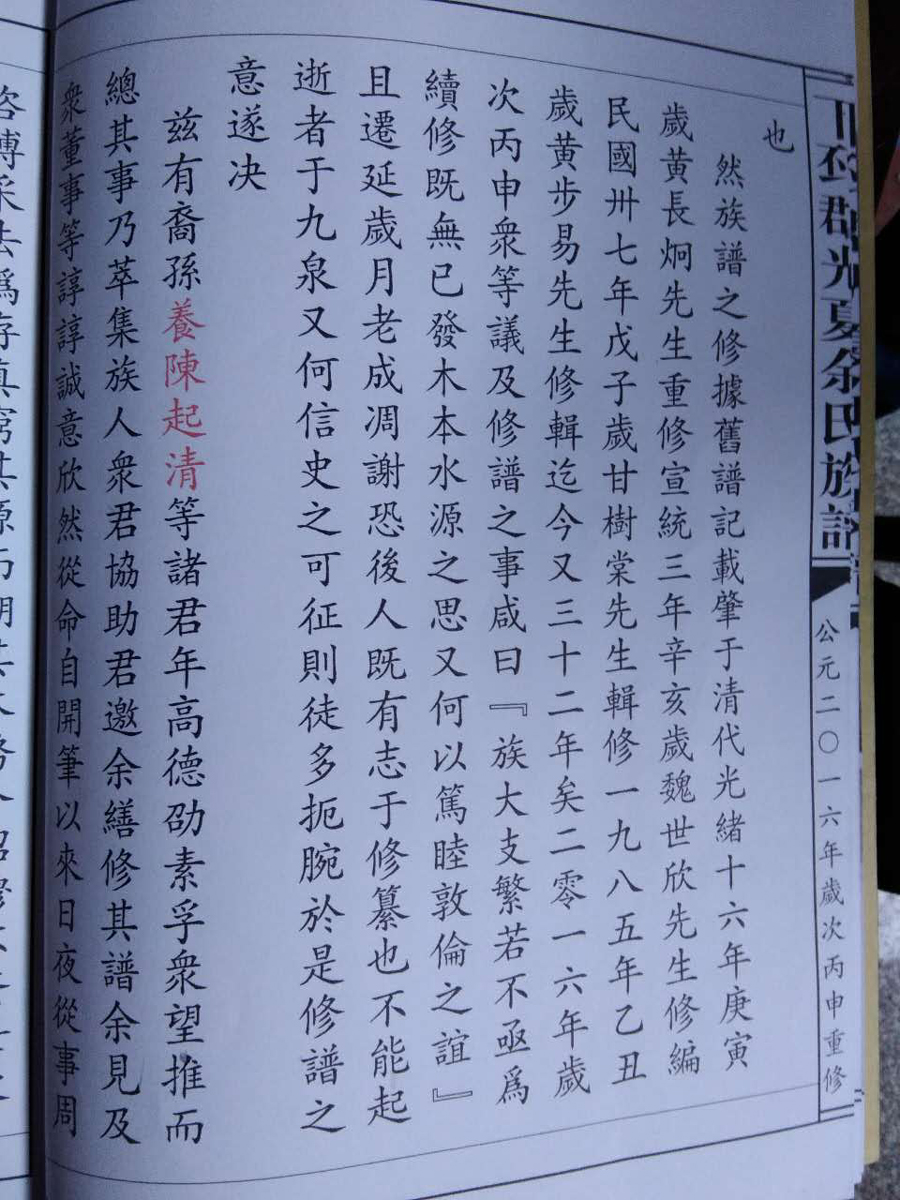 郡光夏余氏族譜
公元二〇一六年歲次丙申重修
也
然族譜之修據舊譜記載肇于清代光緒十六年庚寅
歲黄長炯先生重修宣統三年辛亥歲魏世欣先生修編
民國卅七年戊子歲甘樹棠先生輯修一九八五年乙丑
歲黄步易先生修輯迄今又三十二年矣二零一六年歲
次丙申衆等議及修譜之事咸曰『族大支繁若不亟爲
續修既無已發木本水源之思又何以篤睦敦倫之誼』
且遷延歲月老成凋謝恐後人既有志于修纂也不能起
逝者于九泉又何信史之可征則徒多扼腕於是修譜之
意遂决
兹有裔孫養陳起清等諸君年高德劭素孚衆望推而
總其事乃萃集族人衆君協助君邀余繕修其譜余見及
衆董事等諄諄誠意欣然從命自開筆以來日夜從事周